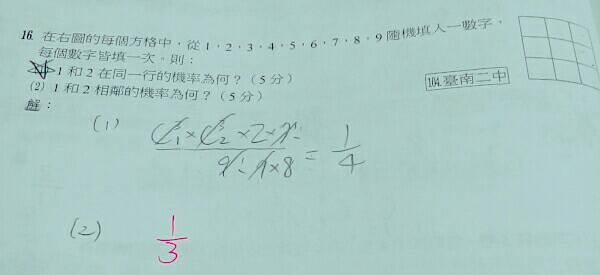 16. 在右圖的每個方格中，從 1，2，3，4，5，6，7，8，9 隨機填入一數字，
每個數字皆填一次。則：
(1) 1 和 2 在同一行的機率為何？(5 分)
(2) 1 和 2 相鄰的機率為何？(5 分)
104.臺南二中
解：
(1)
C³₁×C³₂×2×7! / 9! 9×8 = 1/4
(2) 1/3